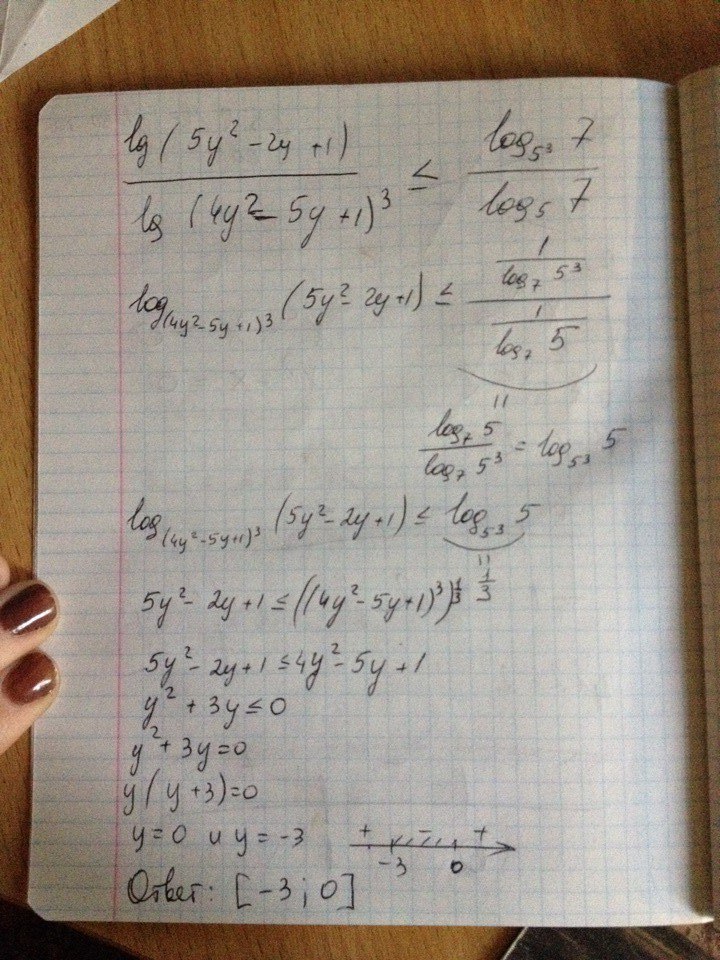 lg(5y² - 2y + 1) / lg(4y² - 5y + 1)³ ≤ log₅³ 7 / log₅ 7
log₍₄y²₋₅y₊₁₎³ (5y² - 2y + 1) ≤ (1 / log₇ 5³) / (1 / log₇ 5)
"
log₇ 5 / log₇ 5³ = log₅³ 5
log₍₄y²₋₅y₊₁₎³ (5y² - 2y + 1) ≤ log₅³ 5
"
1/3
5y² - 2y + 1 ≤ ((4y² - 5y + 1)³)^1/3
5y² - 2y + 1 ≤ 4y² - 5y + 1
y² + 3y ≤ 0
y² + 3y = 0
y(y + 3) = 0
y = 0 и y = -3
+ - +
-3 0
Ответ: [-3; 0]